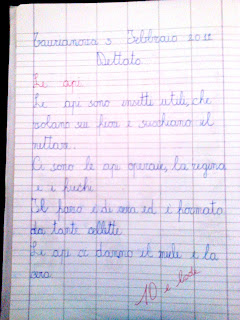 Taurianova 5 Febbraio 2012
Dettato
Le api
Le api sono insetti utili, che
volano sui fiori e succhiano il
nettare.
Ci sono le api operaie, la regina
e i fuchi.
Il favo è di cera ed è formato
da tante cellette
Le api ci danno il miele e la
cera
10 e lode